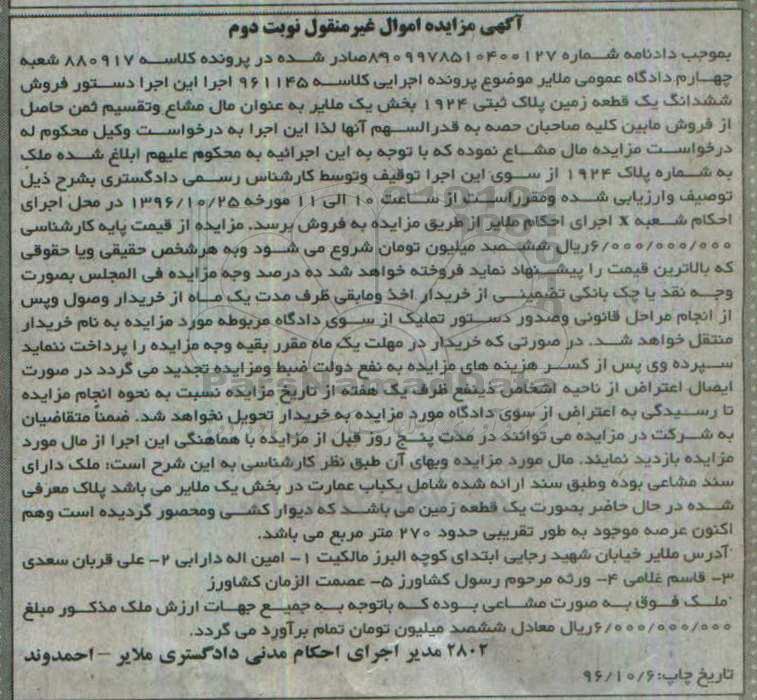 آگهی مزایده اموال غیرمنقول نوبت دوم
بموجب دادنامه شماره ۸۹۰۹۹۷۸۵۱۰۴۰۰۱۲۷صادر شده در پرونده کلاسه ۸۸۰۹۱۷ شعبه
چهارم دادگاه عمومی ملایر موضوع پرونده اجرایی کلاسه ۹۶۱۱۴۵ اجرا این اجرا دستور فروش
ششدانگ یک قطعه زمین پلاک ثبتی ۱۹۲۴ بخش یک ملایر به عنوان مال مشاع وتقسیم ثمن حاصل
از فروش مابین کلیه صاحبان حصه به قدرالسهم آنها لذا این اجرا به درخواست وکیل محکوم له
درخواست مزایده مال مشاع نموده که با توجه به این اجرائیه به محکوم علیهم ابلاغ شده ملک
به شماره پلاک ۱۹۲۴ از سوی این اجرا توقیف وتوسط کارشناس رسمی دادگستری بشرح ذیل
توصیف وارزیابی شده ومقرراست از ساعت ۱۰ الی ۱۱ مورخه ۱۳۹۶/۱۰/۲۵ در محل اجرای
احکام شعبه x اجرای احکام ملایر از طریق مزایده به فروش برسد. مزایده از قیمت پایه کارشناسی
۶/۰۰۰/۰۰۰/۰۰۰ریال ششصد میلیون تومان شروع می شود وبه هرشخص حقیقی ویا حقوقی
که بالاترین قیمت را پیشنهاد نماید فروخته خواهد شد ده درصد وجه مزایده فی المجلس بصورت
وجه نقد یا چک بانکی تضمینی از خریدار اخذ ومابقی ظرف مدت یک ماه از خریدار وصول وپس
از انجام مراحل قانونی وصدور دستور تملیک از سوی دادگاه مربوطه مورد مزایده به نام خریدار
منتقل خواهد شد. در صورتی که خریدار در مهلت یک ماه مقرر بقیه وجه مزایده را پرداخت ننماید
سپرده وی پس از کسر هزینه های مزایده به نفع دولت ضبط ومزایده تجدید می گردد در صورت
ایصال اعتراض از ناحیه اشخاص ذینفع ظرف یک هفته از تاریخ مزایده نسبت به نحوه انجام مزایده
تا رسیدگی به اعتراض از سوی دادگاه مورد مزایده به خریدار تحویل نخواهد شد. ضمناً متقاضیان
به شرکت در مزایده می توانند در مدت پنج روز قبل از مزایده با هماهنگی این اجرا از مال مورد
مزایده بازدید نمایند. مال مورد مزایده وبهای آن طبق نظر کارشناسی به این شرح است: ملک دارای
سند مشاعی بوده وطبق سند ارائه شده شامل یکباب عمارت در بخش یک ملایر می باشد پلاک معرفی
شده در حال حاضر بصورت یک قطعه زمین می باشد که دیوار کشی ومحصور گردیده است وهم
اکنون عرصه موجود به طور تقریبی حدود ۲۷۰ متر مربع می باشد.
آدرس ملایر خیابان شهید رجایی ابتدای کوچه البرز مالکیت ۱- امین اله دارابی ۲- علی قربان سعدی
۳- قاسم غلامی ۴- ورثه مرحوم رسول کشاورز ۵- عصمت الزمان کشاورز
ملک فوق به صورت مشاعی بوده که باتوجه به جمیع جهات ارزش ملک مذکور مبلغ
۶/۰۰۰/۰۰۰/۰۰۰ریال معادل ششصد میلیون تومان تمام برآورد می گردد.
۲۸۰۲ مدیر اجرای احکام مدنی دادگستری ملایر - احمدوند
تاریخ چاپ: ۹۶/۱۰/۶